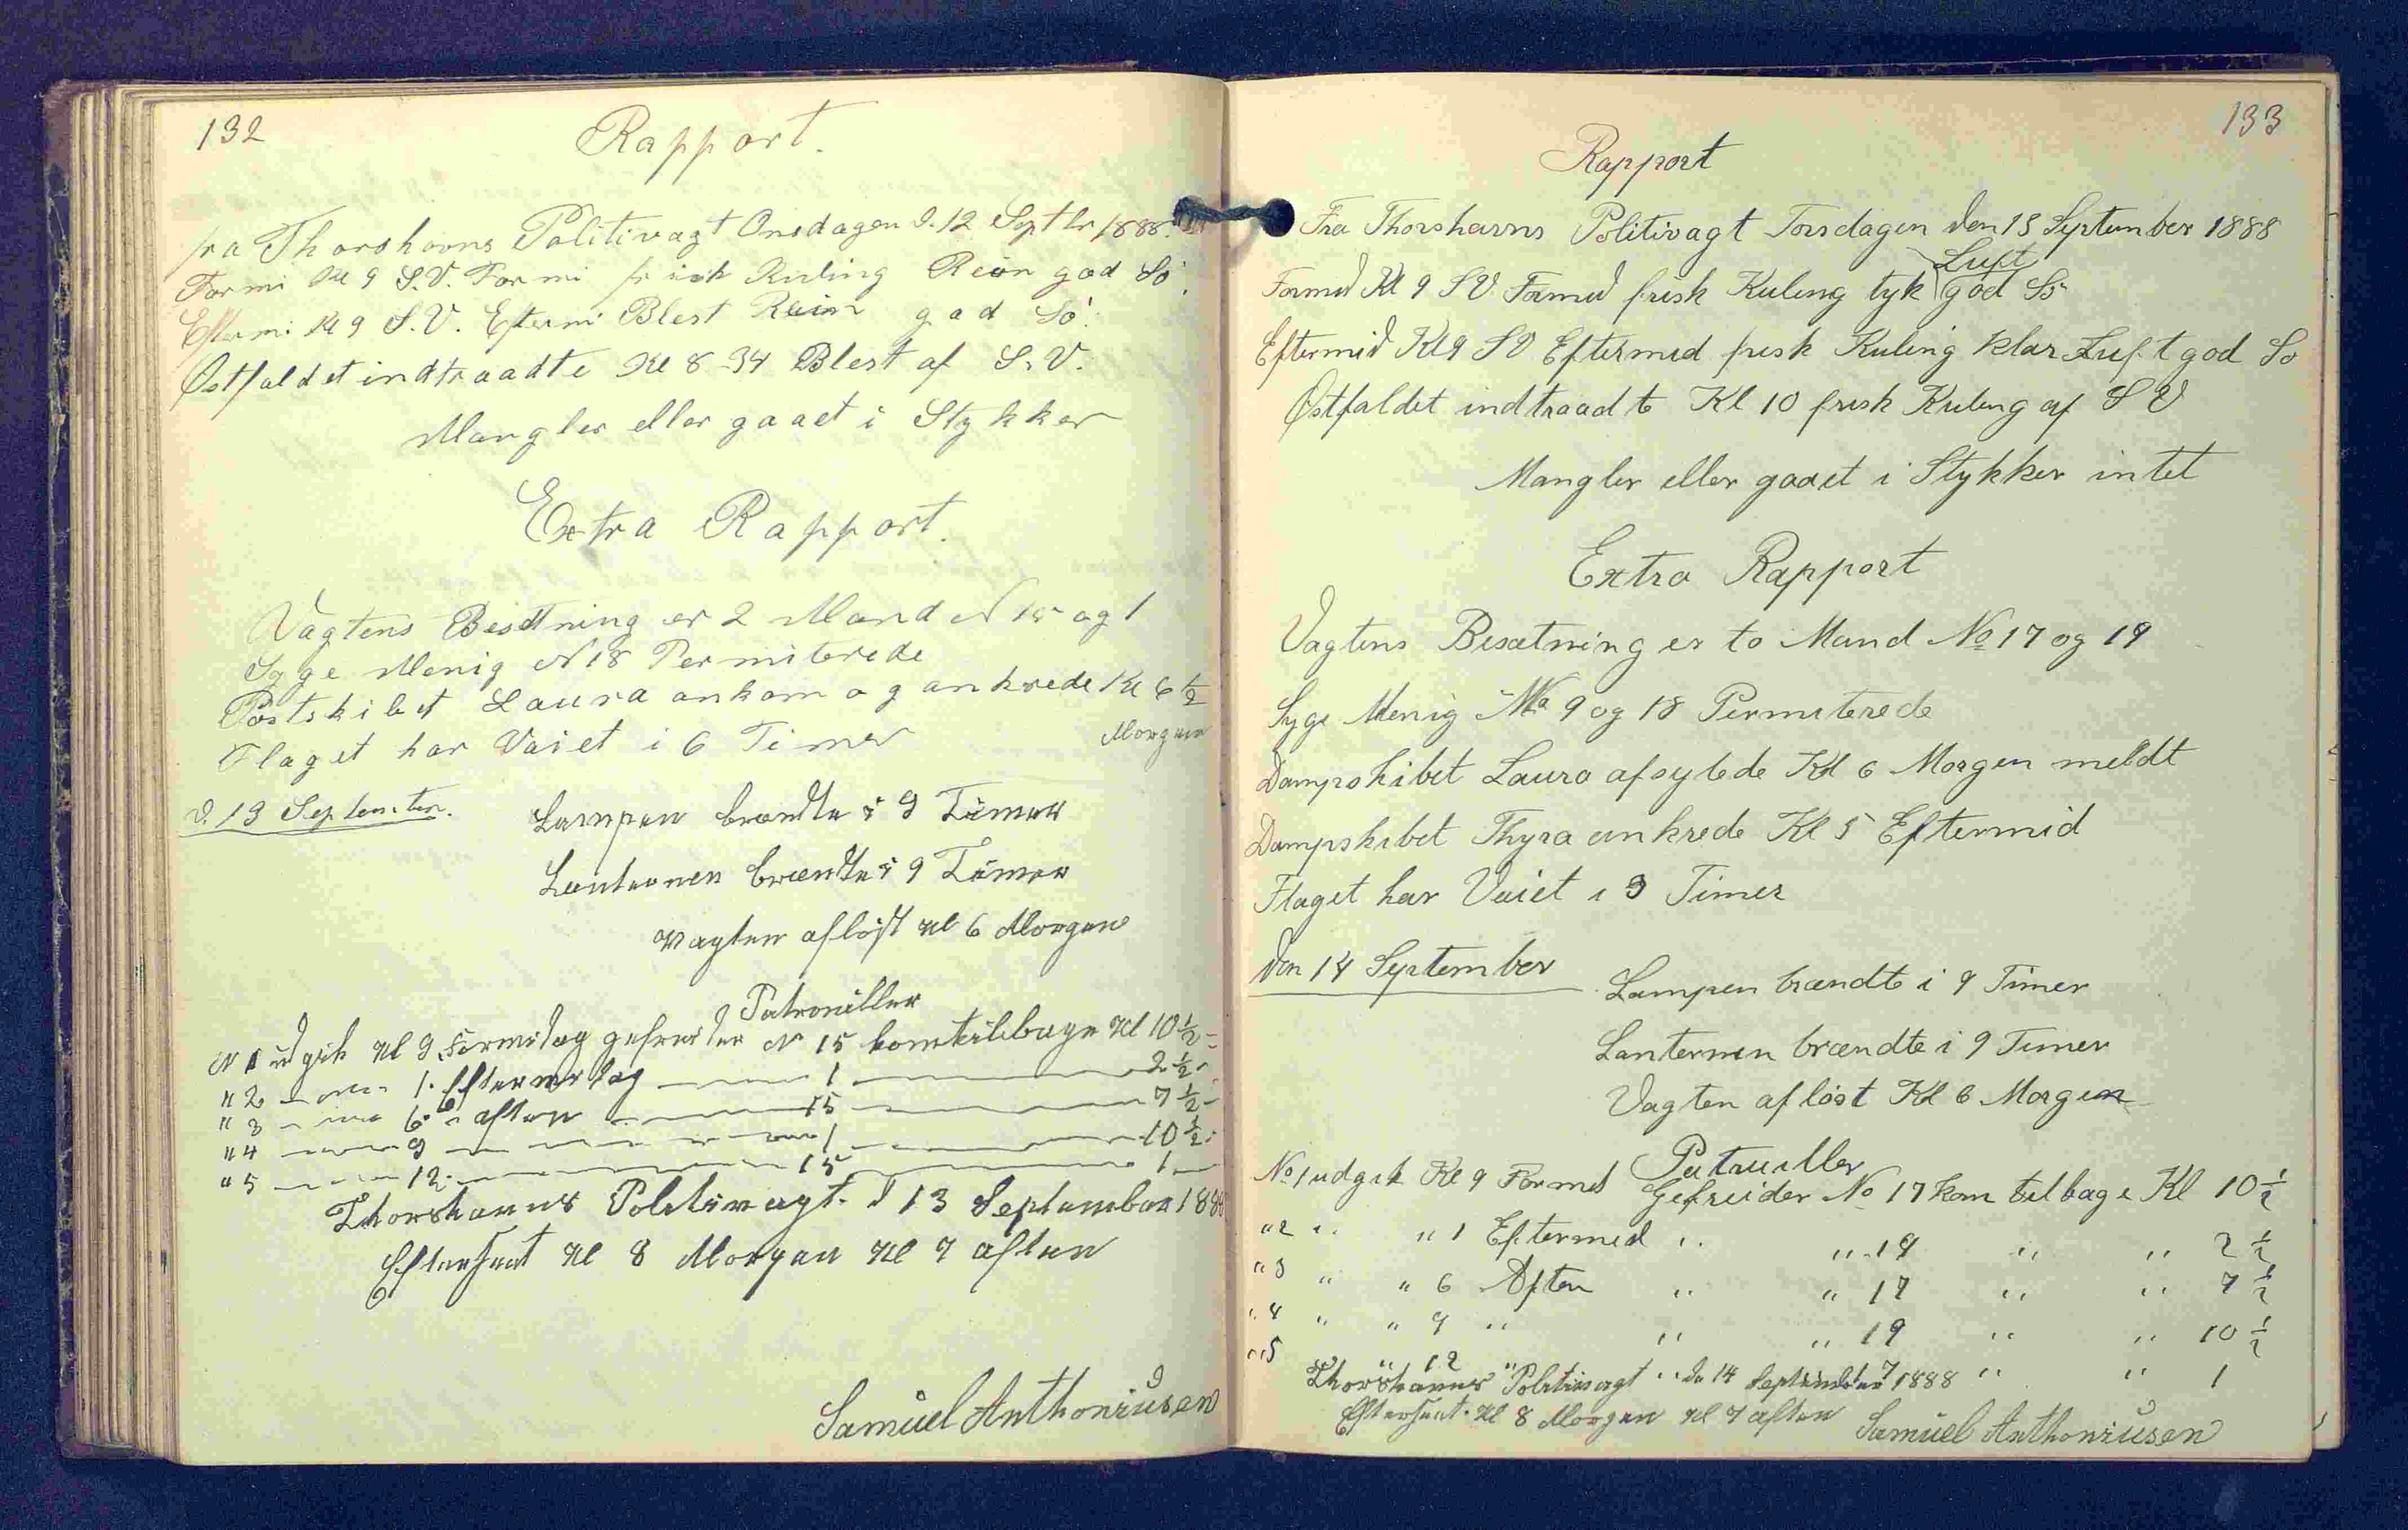 132
Rapport.
fra Thorshavns Politivagt Onsdagen d. 12 Septbr 1888.
Formi Kl 9 S.V. Formi frisk Kuling Rein god Sö.
Eftermi Kl 9 S.V. Eftermi Blest Rein god Sö.
Østfaldet indtraadte Kl 8-34 Blest af S.V.
Mangler eller gaaet i Stykker
Extra Rapport.
Vagtens Besetning er 2 Mand N 15 og 1
Syge Menig N 18 Permiterede
Postskibet Laura ankom og ankrede Kl 6 1/2
Morgen
Flaget har Vaiet i 6 Timer
d. 13 September.
Lampen brændte i 9 Timer
Lanternen brændte i 9 Timer
Vagten afløst Kl 6 Morgen
Patrouiller
N 1 udgik Kl 9 Formidag gefreider N 15 kom tilbage Kl 10 1/2
" 2 1. Eftermidag 1 2 1/2
" 3 6 " aften 15 7 1/2
" 4 9 1 10 1/2
" 5 12 15 1
Thorshavns Politivagt. d 13 September 188
Efterseet Kl 8 Morgen Kl 7 aften
Samuel Anthoniusen
133
Rapport
Fra Thorshavns Politivagt Torsdagen den 13 September 1888
Luft
Formd Kl 9 SV Formd frisk Kuling tyk god Sö
Eftermid Kl 9 SV Eftermid frisk Kuling klar Luft god So
Østfaldet indtraadte Kl 10 frisk Kuling af SV
Mangler eller gaaet i Stykker intet
Extra Rapport
Vagtens Besætning er to Mand No 17 og 19
Syge Menig No 9 og 18 Permiterede
Dampskibet Laura afsylede Kl 6 Morgen meldt
Dampskibet Thyra ankrede Kl 5 Eftermid
Flaget har Vaiet i 3 Timer
den 14 September
Lampen brændte i 9 Timer
Lanternen brændte i 9 Timer
Vagten afløst Kl 6 Morgen
Patruiller
No 1 udgik Kl 9 Formd Gefreider No 17 kom tilbage Kl 10 1/2
" 2 " " 1 Eftermid " " 19 " " 2 1/2
" 3 " " 6 Aften " " 17 " " 7 1/2
" 4 " " 9 " " " 19 " " 10 1/2
" 5 " 12 " " 17 " " 1
Thorshavns Politivagt d 14 September 1888
Efterseet. Kl 8 Morgen Kl 7 aften
Samuel Anthoniusen